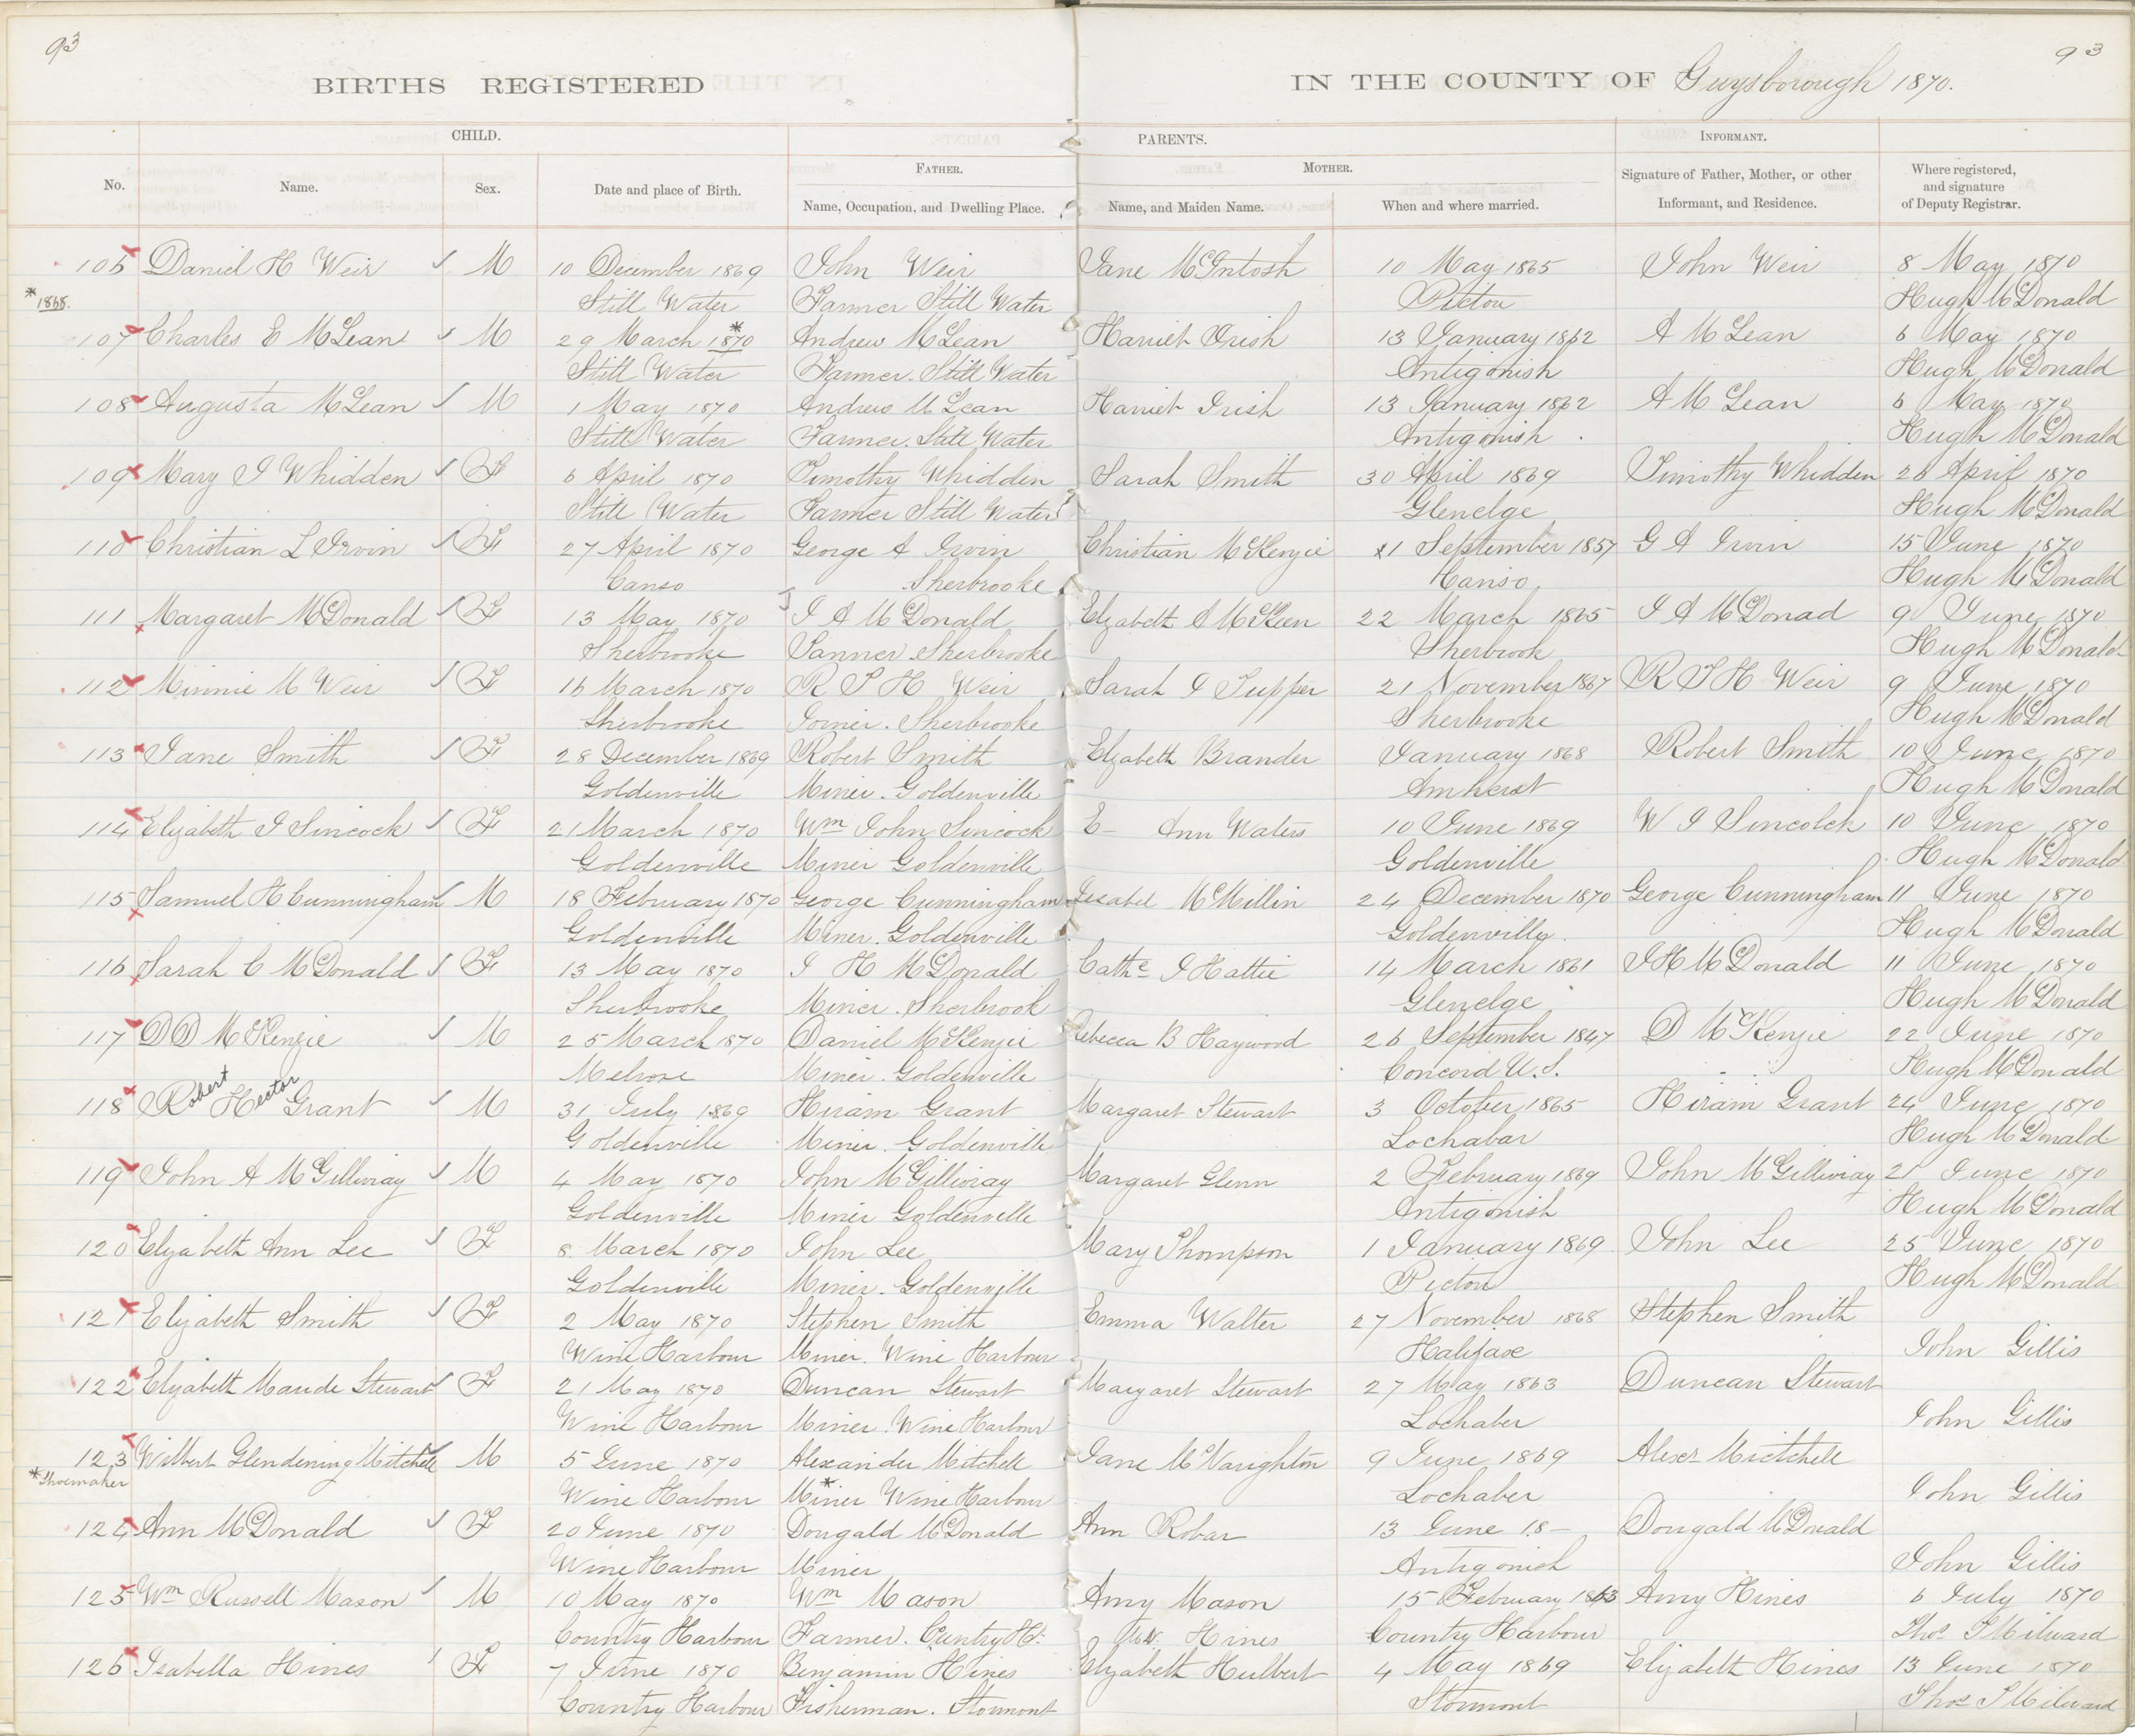 93
93
BIRTHS REGISTERED
IN THE COUNTY OF Guysborough 1870.
CHILD.
PARENTS.
INFORMANT.
No.
Name.
Sex.
Date and place of Birth.
FATHER.
Name, Occupation, and Dwelling Place.
MOTHER.
Name, and Maiden Name.
When and where married.
Signature of Father, Mother, or other
Informant, and Residence.
Where registered,
and signature
of Deputy Registrar.
106 Daniel H Weir M 10 December 1869 John Weir Jane McIntosh 10 May 1865 John Weir 8 May 1870
Still Water Farmer Still Water Pictou Hugh McDonald
*1868.
107 Charles E McLean M 29 March 1870* Andrew McLean Harriet Irish 13 January 1862 A McLean 6 May 1870
Still Water Farmer. Still Water Antigonish Hugh McDonald
108 Augusta McLean M 1 May 1870 Andrew McLean Harriet Irish 13 January 1862 A McLean 6 May 1870
Still Water Farmer. Still Water Antigonish Hugh McDonald
109 Mary J Whidden F 6 April 1870 Timothy Whidden Sarah Smith 30 April 1869 Timothy Whidden 28 April 1870
Still Water Farmer Still Water Glenelge Hugh McDonald
110 Christian L Irvin F 27 April 1870 George A Irvin Christian McKenzie 21 September 1857 G A Irvin 15 June 1870
Canso Sherbrooke Canso Hugh McDonald
111 Margaret McDonald F 13 May 1870 J A McDonald Elizabeth A McKeen 22 March 1865 J A McDonad 9 June 1870
Sherbrooke Tanner Sherbrooke Sherbrook Hugh McDonald
112 Minnie M Weir F 16 March 1870 R P H Weir Sarah J Tupper 21 November 1867 R P H Weir 9 June 1870
Sherbrooke Joiner. Sherbrooke Sherbrooke Hugh McDonald
113 Jane Smith F 28 December 1869 Robert Smith Elizabeth Brander January 1868 Robert Smith 10 June 1870
Goldenville Miner. Goldenville Amherst Hugh McDonald
114 Elizabeth J Sincock F 21 March 1870 Wm John Sincock E— Ann Waters 10 June 1869 W J Sincolck 10 June 1870
Goldenville Miner Goldenville Goldenville Hugh McDonald
115 Samuel H Cunningham M 18 February 1870 George Cunningham Isabel McMillin 24 December 1870 George Cunningham 11 June 1870
Goldenville Miner. Goldenville Goldenville Hugh McDonald
116 Sarah C McDonald F 13 May 1870 J H McDonald Cathe J Hattie 14 March 1861 J H McDonald 11 June 1870
Sherbrooke Miner. Sherbrook Glenelge Hugh McDonald
117 D D McKenzie M 25 March 1870 Daniel McKenzie Rebecca B Haywood 26 September 1847 D McKenzie 22 June 1870
Melrose Miner. Goldenville Concord U.S. Hugh McDonald
118 Robert Hector Grant M 31 July 1869 Hiram Grant Margaret Stewart 3 October 1865 Hiram Grant 24 June 1870
Goldenville Miner. Goldenville Lochabar Hugh McDonald
119 John A McGillivray M 4 May 1870 John McGillivray Margaret Glenn 2 February 1869 John McGillivray 21 June 1870
Goldenville Miner Goldenville Antigonish Hugh McDonald
120 Elizabeth Ann Lee F 8 March 1870 John Lee Mary Thompson 1 January 1869 John Lee 25 June 1870
Goldenville Miner. Goldenville Pictou Hugh McDonald
121 Elizabeth Smith F 2 May 1870 Stephen Smith Emma Walter 27 November 1868 Stephen Smith
Wine Harbour Miner. Wine Harbour Halifax John Gillis
122 Elizabeth Maude Stewart F 21 May 1870 Duncan Stewart Margaret Stewart 27 May 1863 Duncan Stewart
Wine Harbour Miner. Wine Harbour Lochaber John Gillis
123 Wilbert Glendening Mitchell M 5 June 1870 Alexander Mitchell Jane McNaughton 9 June 1869 Alexr Mictchell
*Shoemaker
Wine Harbour Miner* Wine Harbour Lochaber John Gillis
124 Ann McDonald F 20 June 1870 Dougald McDonald Ann Robar 13 June 18— Dougald McDonald
Wine Harbour Miner Antigonish John Gillis
125 Wm Russell Mason M 10 May 1870 Wm Mason Amy Mason 15 February 1863 Amy Hines 6 July 1870
Country Harbour Farmer. Cuntry Hr. Hines Country Harbour Thos S Milward
126 Isabella Hines F 7 June 1870 Benjamin Hines Elizabeth Hulbert 4 May 1869 Elizabeth Hines 13 June 1870
Country Harbour Fisherman. Stormont Stormont Thos S Milward